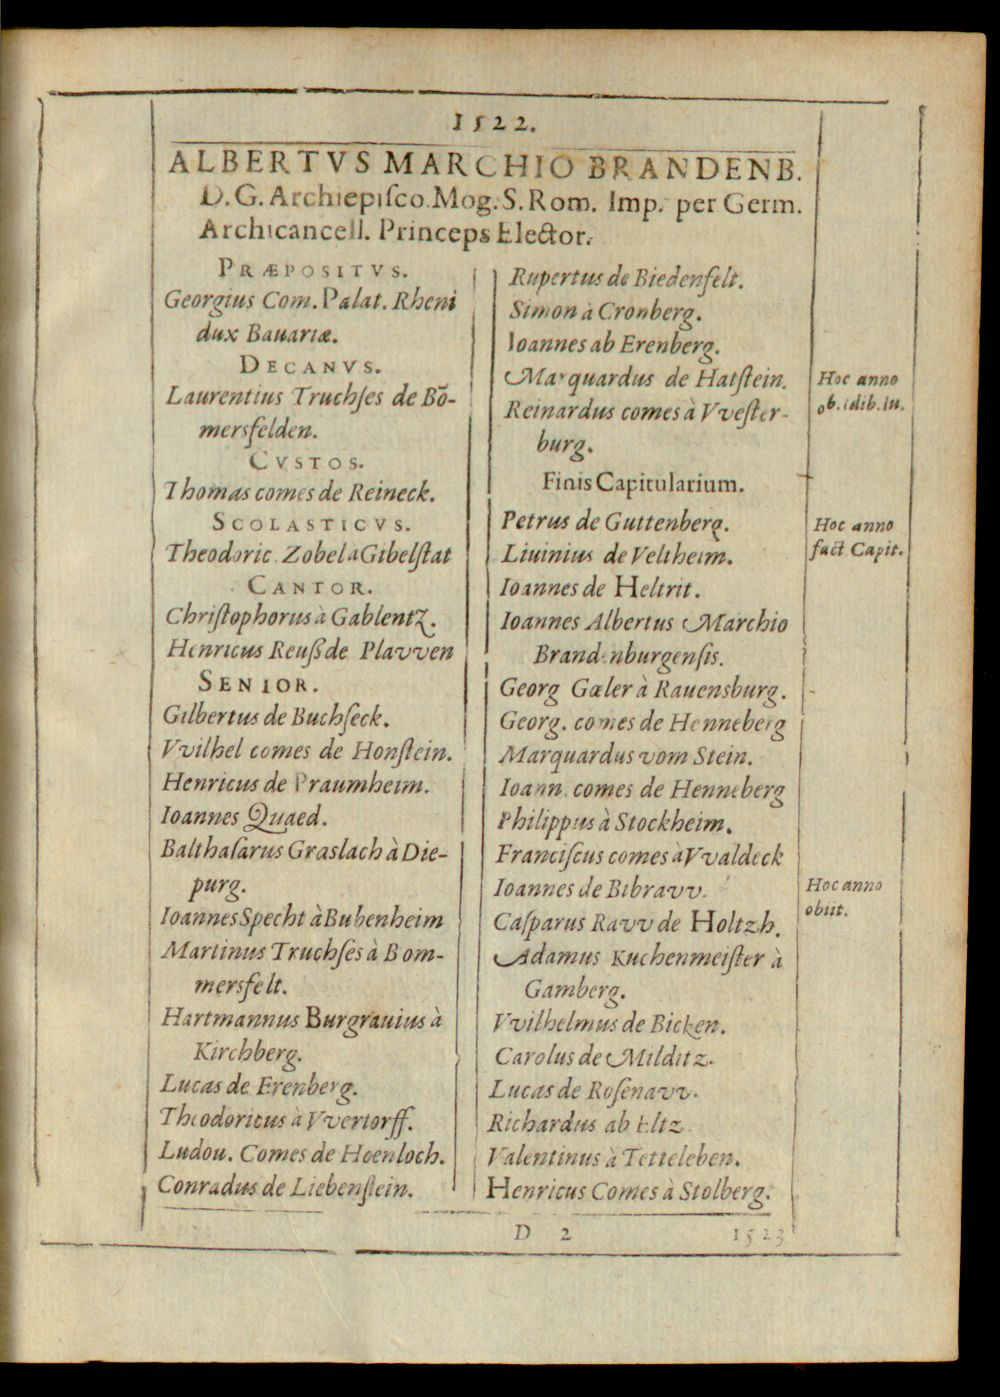 1522.
ALBERTVS MARCHIO BRANDENB.
D. G. Archiepiſco. Mog. S. Rom. Imp. per Germ.
Archicancell. Princeps Elector.
PRÆPOSITVS.
Georgius Com. Palat. Rheni
dux Bauariæ.
DECANVS.
Laurentius Truchſes de Bō-
mersfelden.
CVSTOS.
Thomas comes de Reineck.
SCOLASTICVS.
Theodoric. Zobel a Gibelſtat
CANTOR.
Chriſtophorus à Gablentz.
Henricus Reuß de Plavven
SENIOR.
Gilbertus de Buchſeck.
Vvilhel comes de Honſtein.
Henricus de Praumheim.
Ioannes Quaed.
Balthaſarus Graslach à Die-
purg.
Ioannes Specht à Bubenheim
Martinus Truchſes à Bom-
mersfelt.
Hartmannus Burgrauius à
Kirchberg.
Lucas de Erenberg.
Theodoricus à Vvertorff.
Ludou. Comes de Hoenloch.
Conradus de Liebenſtein.
Rupertus de Biedenfelt.
Simon à Cronberg.
Ioannes ab Erenberg.
Marquardus de Hatſtein.
Reinardus comes à Vveſter-
burg.
Finis Capitularium.
Petrus de Guttenberg.
Liuinius de Veltheim.
Ioannes de Heltrit.
Ioannes Albertus Marchio
Brandenburgenſis.
Georg Gœler à Rauensburg.
Georg. comes de Henneberg
Marquardus vom Stein.
Ioann. comes de Henneberg
Philippus à Stockheim.
Franciſcus comes à Vvaldeck
Ioannes de Bibravv.
Caſparus Ravv de Holtzh.
Adamus Kuchenmeiſter à
Gamberg.
Vvilhelmus de Bicken.
Carolus de Milditz.
Lucas de Roſenavv.
Richardus ab Eltz
Valentinus à Tetteleben.
Henricus Comes à Stolberg.
Hoc anno
ob. idib. Iu.
Hoc anno
fact Capit.
Hoc anno
obiit.
D 2
1523